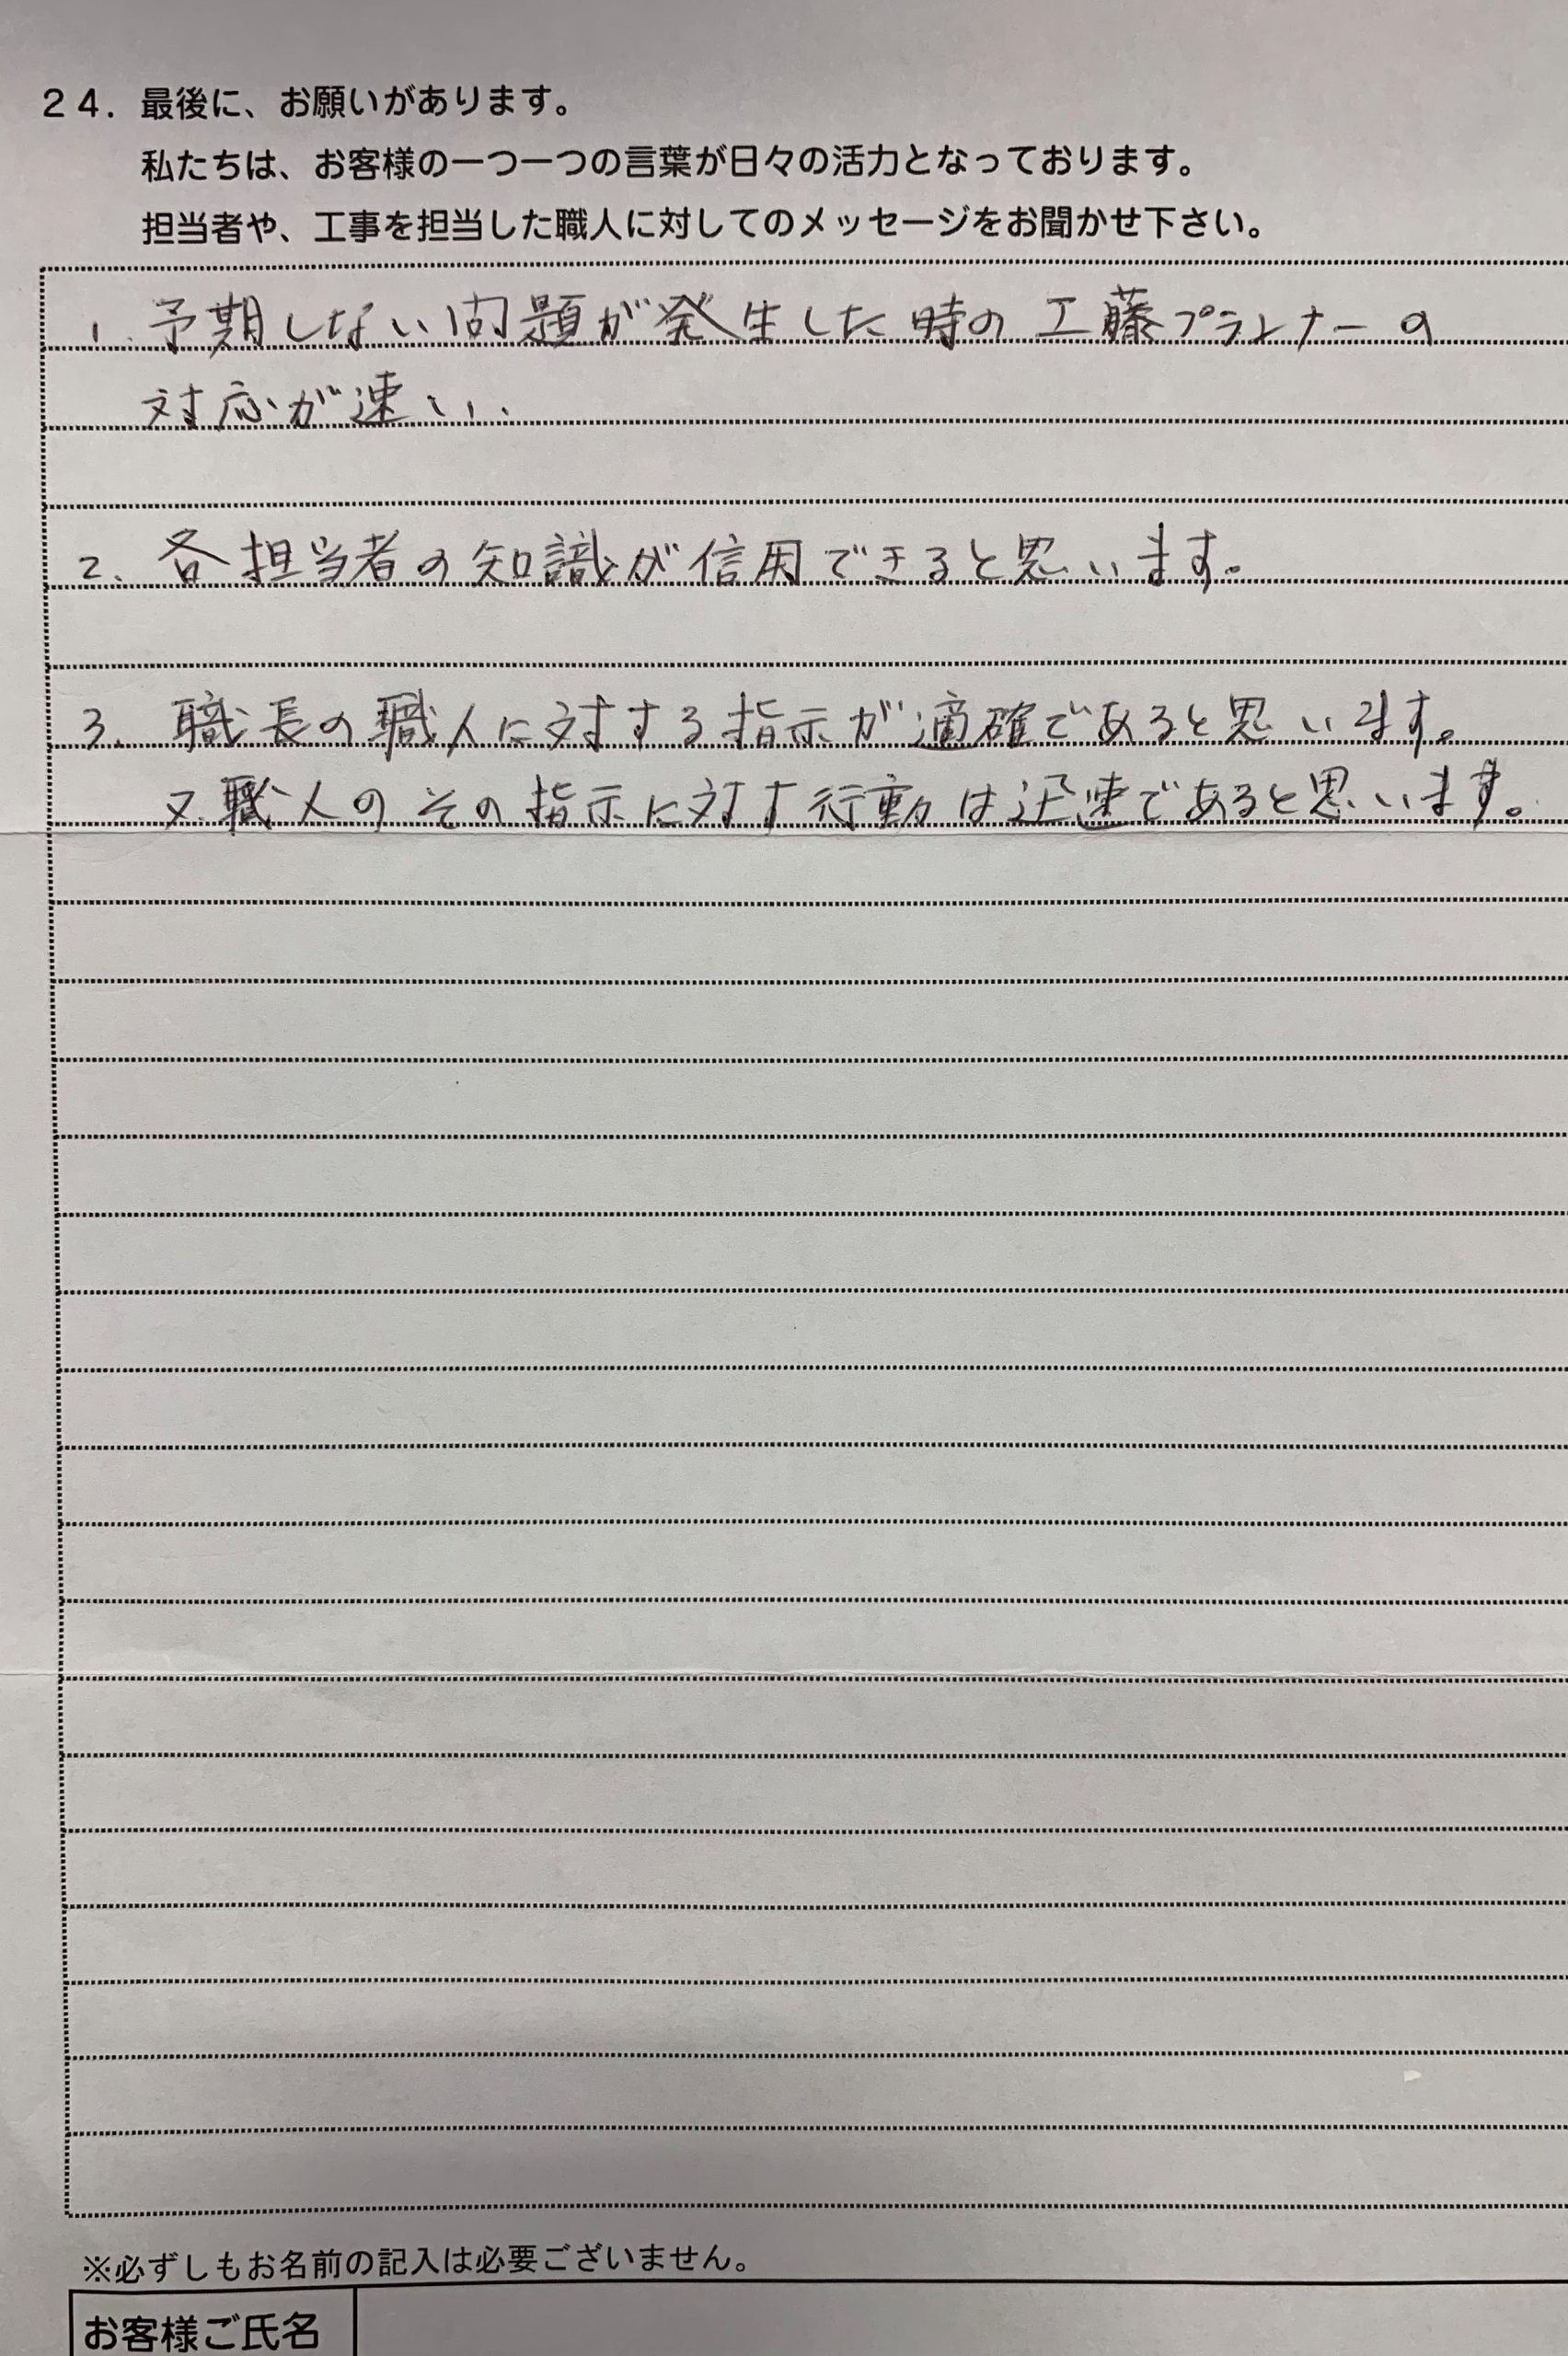 ２４．最後に、お願いがあります。
私たちは、お客様の一つ一つの言葉が日々の活力となっております。
担当者や、工事を担当した職人に対してのメッセージをお聞かせ下さい。
1. 予期しない問題が発生した時の工藤プランナーの
対応が速い.
2. 各担当者の知識が信用できると思います。
3. 職長の職人に対する指示が適確であると思います。
又職人のその指示に対す行動は迅速であると思います。
※必ずしもお名前の記入は必要ございません。
お客様ご氏名